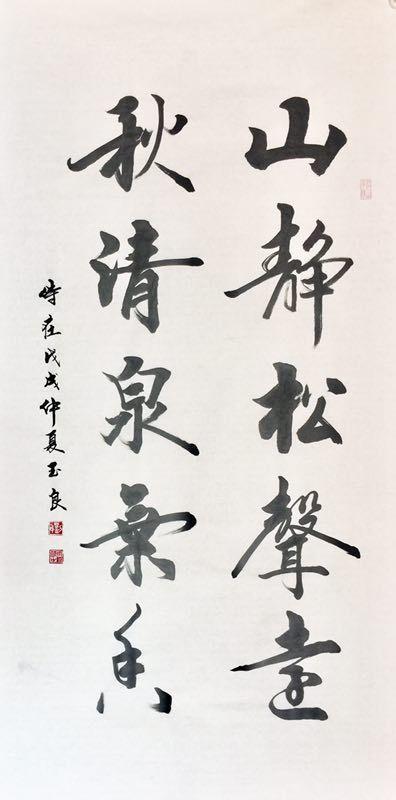 山静松聲遠
秋清泉氣香
時在戊戌仲夏玉良